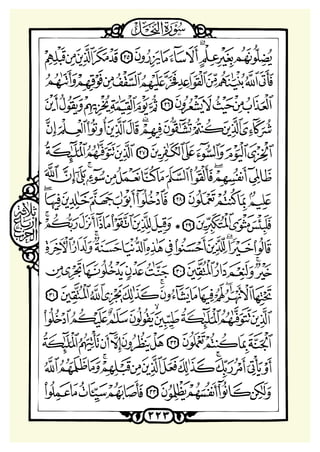 سُورَةُ النَّحْلِ
يُضِلُّونَهُم بِغَيْرِ عِلْمٍ ۗ أَلَا سَآءَ مَا يَزِرُونَ ٢٥ قَدْ مَكَرَ ٱلَّذِينَ مِن قَبْلِهِمْ
فَأَتَى ٱللَّهُ بُنْيَٰنَهُم مِّنَ ٱلْقَوَاعِدِ فَخَرَّ عَلَيْهِمُ ٱلسَّقْفُ مِن فَوْقِهِمْ وَأَتَىٰهُمُ
ٱلْعَذَابُ مِنْ حَيْثُ لَا يَشْعُرُونَ ٢٦ ثُمَّ يَوْمَ ٱلْقِيَٰمَةِ يُخْزِيهِمْ وَيَقُولُ أَيْنَ
شُرَكَآءِىَ ٱلَّذِينَ كُنتُمْ تُشَٰٓقُّونَ فِيهِمْ ۚ قَالَ ٱلَّذِينَ أُوتُوا۟ ٱلْعِلْمَ إِنَّ
ٱلْخِزْىَ ٱلْيَوْمَ وَٱلسُّوٓءَ عَلَى ٱلْكَٰفِرِينَ ٢٧ ٱلَّذِينَ تَتَوَفَّىٰهُمُ ٱلْمَلَٰٓئِكَةُ
ظَالِمِىٓ أَنفُسِهِمْ ۖ فَأَلْقَوُا۟ ٱلسَّلَمَ مَا كُنَّا نَعْمَلُ مِن سُوٓءٍۭ ۚ بَلَىٰٓ إِنَّ ٱللَّهَ
عَلِيمٌۢ بِمَا كُنتُمْ تَعْمَلُونَ ٢٨ فَٱدْخُلُوٓا۟ أَبْوَٰبَ جَهَنَّمَ خَٰلِدِينَ فِيهَا ۖ
فَلَبِئْسَ مَثْوَى ٱلْمُتَكَبِّرِينَ ٢٩ ۞ وَقِيلَ لِلَّذِينَ ٱتَّقَوْا۟ مَاذَآ أَنزَلَ رَبُّكُمْ ۚ
قَالُوا۟ خَيْرًا ۗ لِّلَّذِينَ أَحْسَنُوا۟ فِى هَٰذِهِ ٱلدُّنْيَا حَسَنَةٌ ۚ وَلَدَارُ ٱلْءَاخِرَةِ
خَيْرٌ ۚ وَلَنِعْمَ دَارُ ٱلْمُتَّقِينَ ٣٠ جَنَّٰتُ عَدْنٍ يَدْخُلُونَهَا تَجْرِى مِن
تَحْتِهَا ٱلْأَنْهَٰرُ ۖ لَهُمْ فِيهَا مَا يَشَآءُونَ ۚ كَذَٰلِكَ يَجْزِى ٱللَّهُ ٱلْمُتَّقِينَ ٣١
ٱلَّذِينَ تَتَوَفَّىٰهُمُ ٱلْمَلَٰٓئِكَةُ طَيِّبِينَ ۙ يَقُولُونَ سَلَٰمٌ عَلَيْكُمُ ٱدْخُلُوا۟
ٱلْجَنَّةَ بِمَا كُنتُمْ تَعْمَلُونَ ٣٢ هَلْ يَنظُرُونَ إِلَّآ أَن تَأْتِيَهُمُ ٱلْمَلَٰٓئِكَةُ
أَوْ يَأْتِىَ أَمْرُ رَبِّكَ ۚ كَذَٰلِكَ فَعَلَ ٱلَّذِينَ مِن قَبْلِهِمْ ۚ وَمَا ظَلَمَهُمُ ٱللَّهُ
وَلَٰكِن كَانُوٓا۟ أَنفُسَهُمْ يَظْلِمُونَ ٣٣ فَأَصَابَهُمْ سَيِّـَٔاتُ مَا عَمِلُوا۟
٢٢٣